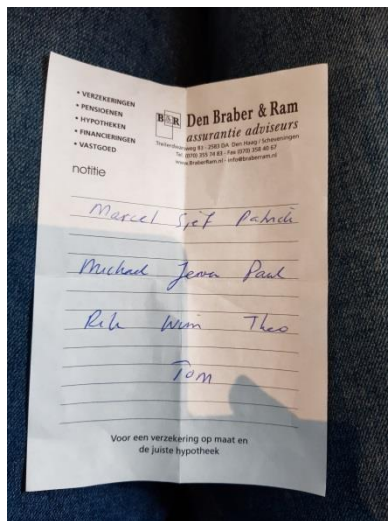 • VERZEKERINGEN
• PENSIOENEN
• HYPOTHEKEN
• FINANCIERINGEN
• VASTGOED
B&R Den Braber & Ram
assurantie adviseurs
83 - 2583 DA Den Haag / Scheveningen
Tel (070) 355 74 83 - Fax (070) 358 40 67
www.BraberRam.nl - info@braberram.nl
notitie
Marcel Sjef Patrick
Michael Jeroen Paul
Rik Wim Theo
Tom
Voor een verzekering op maat en
de juiste hypotheek